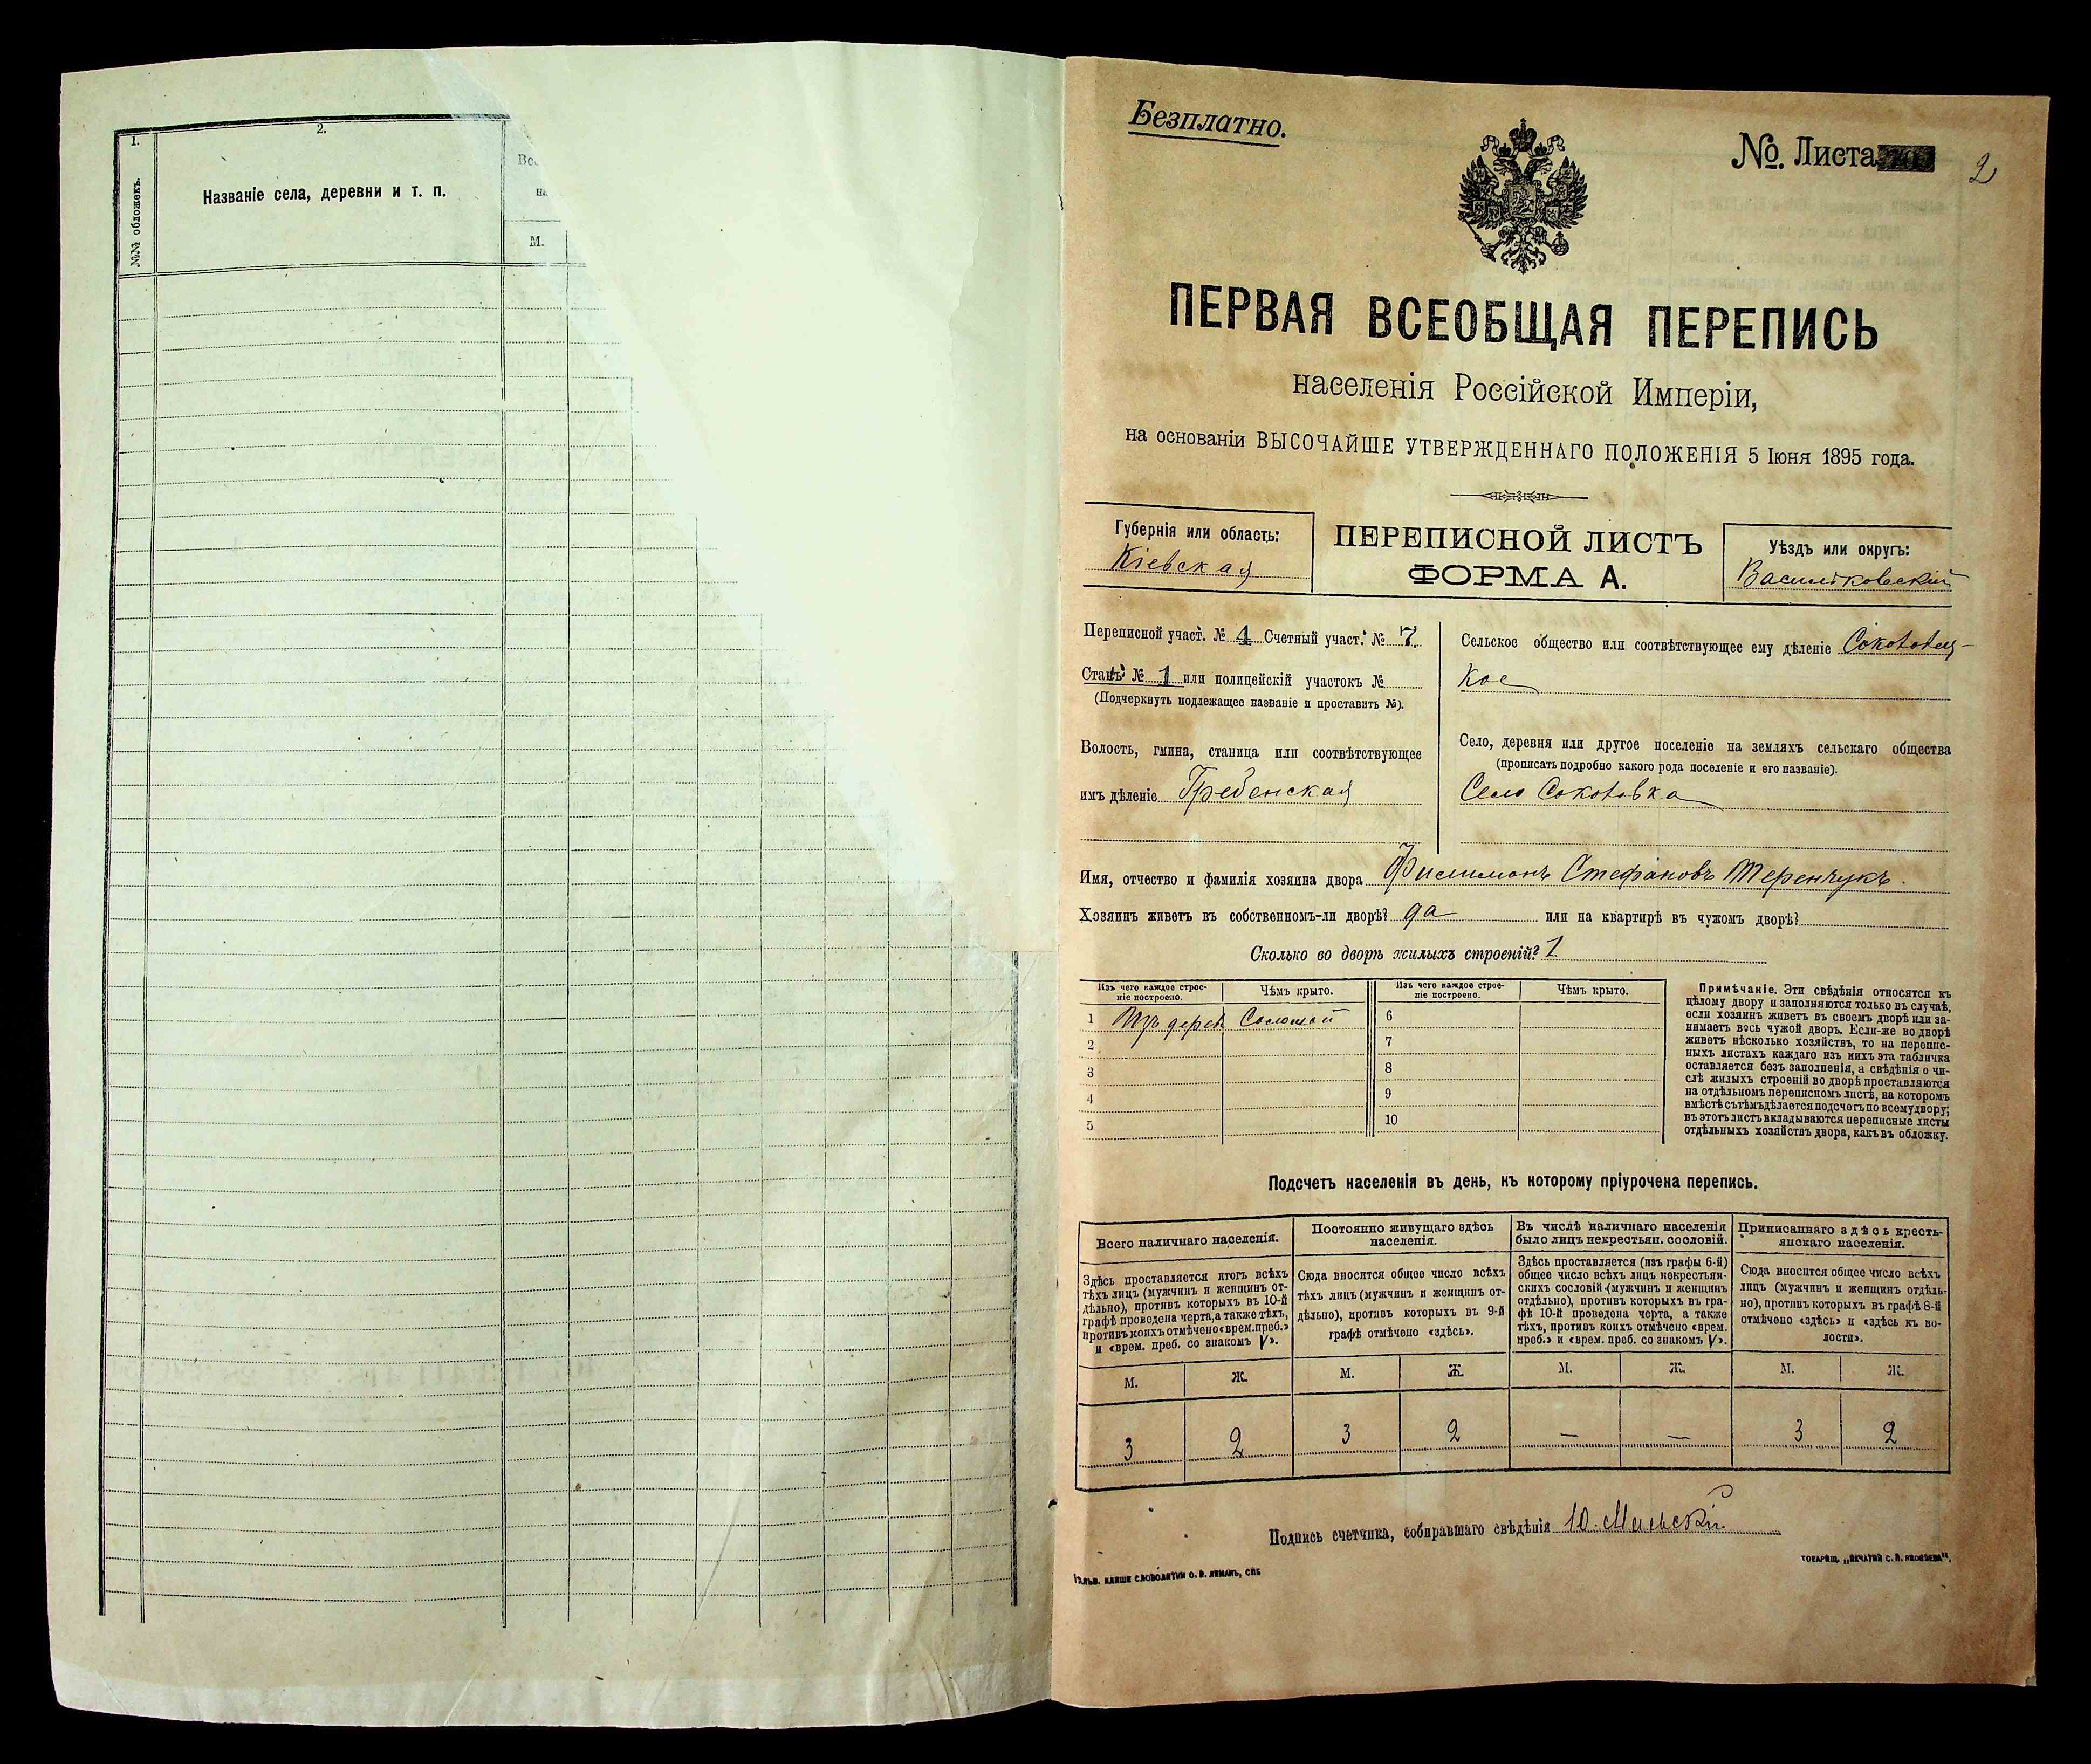 1.
2.
№№ обложекъ.
Названіе села, деревни и т. п.
М.
Безплатно.
№. Листа
2
ПЕРВАЯ ВСЕОБЩАЯ ПЕРЕПИСЬ
населенія Россійской Имперіи,
на основаніи ВЫСОЧАЙШЕ УТВЕРЖДЕННАГО ПОЛОЖЕНІЯ 5 Іюня 1895 года.
Губернія или область:
Кіевская
ПЕРЕПИСНОЙ ЛИСТЪ
ФОРМА А.
Уѣздъ или округъ:
Васильковскій
Переписной участ. № 4 Счетный участ. № 7
Станъ № 1 или полицейскій участокъ №
(Подчеркнуть подлежащее названіе и проставить №).
Волость, гмина, станица или соотвѣтствующее
имъ дѣленіе Гребенская
Сельское общество или соотвѣтствующее ему дѣленіе
кое
Село, деревня или другое поселеніе на земляхъ сельскаго общества
(прописать подробно какого рода поселеніе и его названіе).
Село Соколовка
Имя, отчество и фамилія хозяина двора Филимонъ Стефановъ Теренчукъ.
Хозяинъ живетъ въ собственномъ-ли дворѣ? да или на квартирѣ въ чужомъ дворѣ?
Сколько во дворѣ жилыхъ строеній? 1
Изъ чего каждое строе-
ніе построено.
Чѣмъ крыто.
Изъ чего каждое строе-
ніе построено.
Чѣмъ крыто.
1 Изъ дерев Соломой
2
3
4
5
6
7
8
9
10
Примѣчаніе. Эти свѣдѣнія относятся къ
цѣлому двору и заполняются только въ случаѣ,
если хозяинъ живетъ въ своемъ дворѣ или за-
нимаетъ весь чужой дворъ. Если-же во дворѣ
живетъ нѣсколько хозяйствъ, то на перепис-
ныхъ листахъ каждаго изъ нихъ эта табличка
оставляется безъ заполненія, а свѣдѣнія о чи-
слѣ жилыхъ строеній во дворѣ проставляются
на отдѣльномъ переписномъ листѣ, на которомъ
вмѣстѣ съ тѣмъ дѣлается подсчетъ по всему двору;
въ этотъ листъ вкладываются переписные листы
отдѣльныхъ хозяйствъ двора, какъ въ обложку.
Подсчетъ населенія въ день, къ которому пріурочена перепись.
Всего наличнаго населенія.
Здѣсь проставляется итогъ всѣхъ
тѣхъ лицъ (мужчинъ и женщинъ от-
дѣльно), противъ которыхъ въ 10-й
графѣ проведена черта, а также тѣхъ,
противъ коихъ отмѣчено «врем. преб.»
и «врем. преб. со знакомъ V».
Постоянно живущаго здѣсь
населенія.
Сюда вносится общее число всѣхъ
тѣхъ лицъ (мужчинъ и женщинъ от-
дѣльно), противъ которыхъ въ 9-й
графѣ отмѣчено «здѣсь».
Въ числѣ наличнаго населенія
было лицъ некрестьян. сословій.
Здѣсь проставляется (изъ графы 6-й)
общее число всѣхъ лицъ некрестьян-
скихъ сословій (мужчинъ и женщинъ
отдѣльно), противъ которыхъ въ гра-
фѣ 10-й проведена черта, а также
тѣхъ, противъ коихъ отмѣчено «врем.
преб.» и «врем. преб. со знакомъ V».
Приписаннаго здѣсь кресть-
янскаго населенія.
Сюда вносится общее число всѣхъ
лицъ (мужчинъ и женщинъ отдѣль-
но), противъ которыхъ въ графѣ 8-й
отмѣчено «здѣсь» и «здѣсь къ во-
лости».
М. Ж. М. Ж. М. Ж. М. Ж.
3 2 3 2 — — 3 2
Подпись счетчика, собиравшаго свѣдѣнія Ю.
ТОВАРИЩ. „ПЕЧАТНЯ С. П. ЯКОВЛЕВА“.
КЛИШЕ СЛОВОЛИТНИ О. И. ЛЕМАНЪ, СПБ